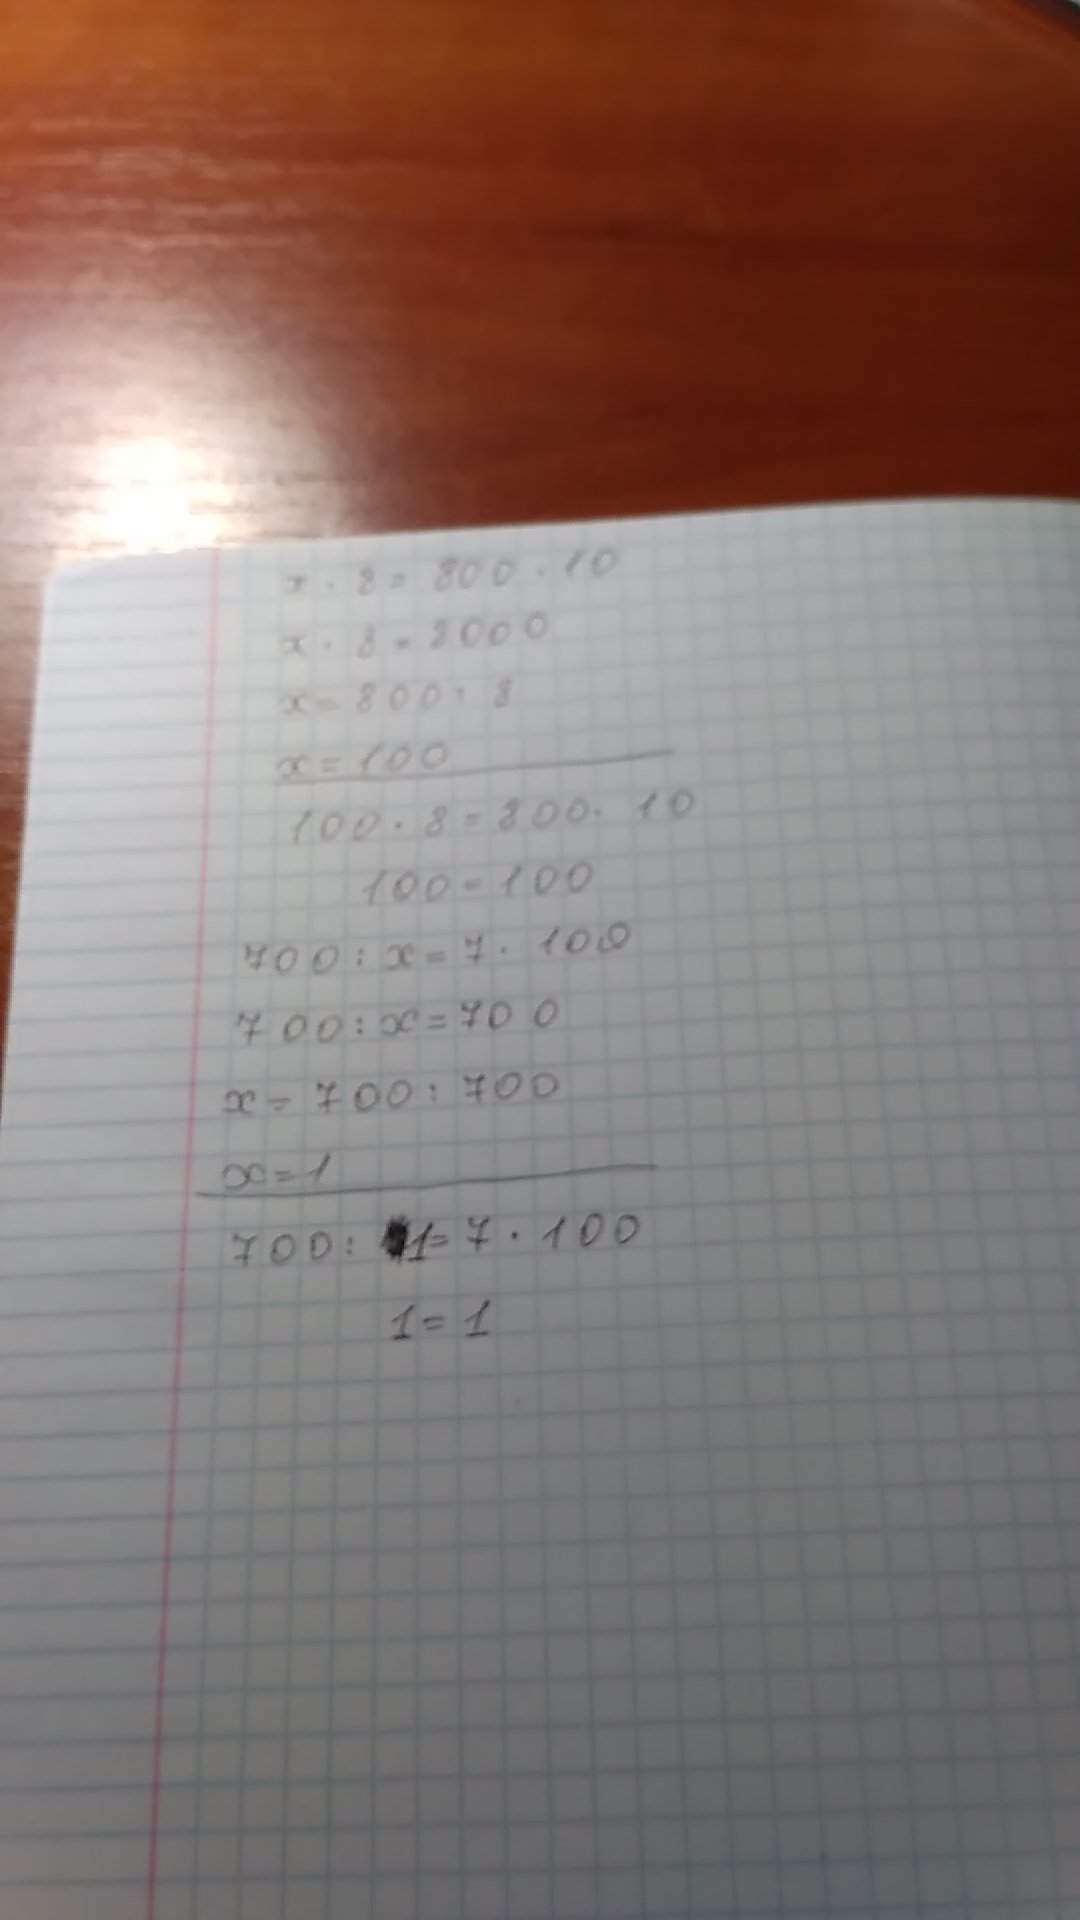 x · 8 = 800 · 10
x · 8 = 8000
x = 800 : 8
x = 100
100 · 8 = 800 · 10
100 = 100
700 : x = 7 · 100
700 : x = 700
x = 700 : 700
x = 1
700 : 1 = 7 · 100
1 = 1